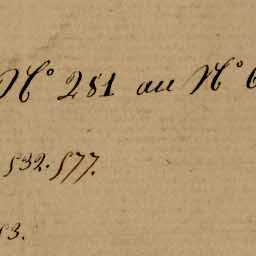 N° 281 au N° 6
532. 577.
53.